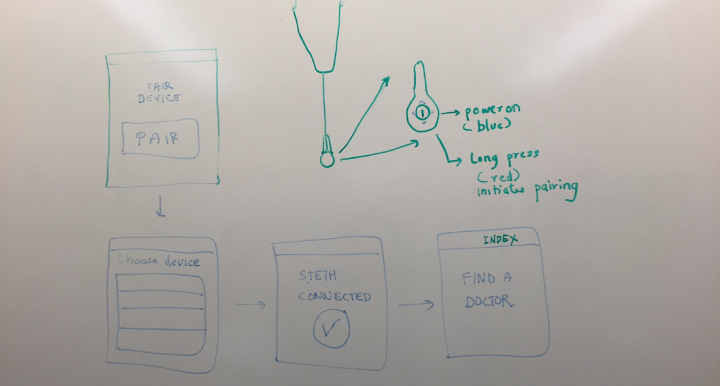 PAIR
DEVICE
PAIR
power on
(blue)
Long press
(red)
initiates pairing
Choose device
STETH
CONNECTED
INDEX
FIND A
DOCTOR